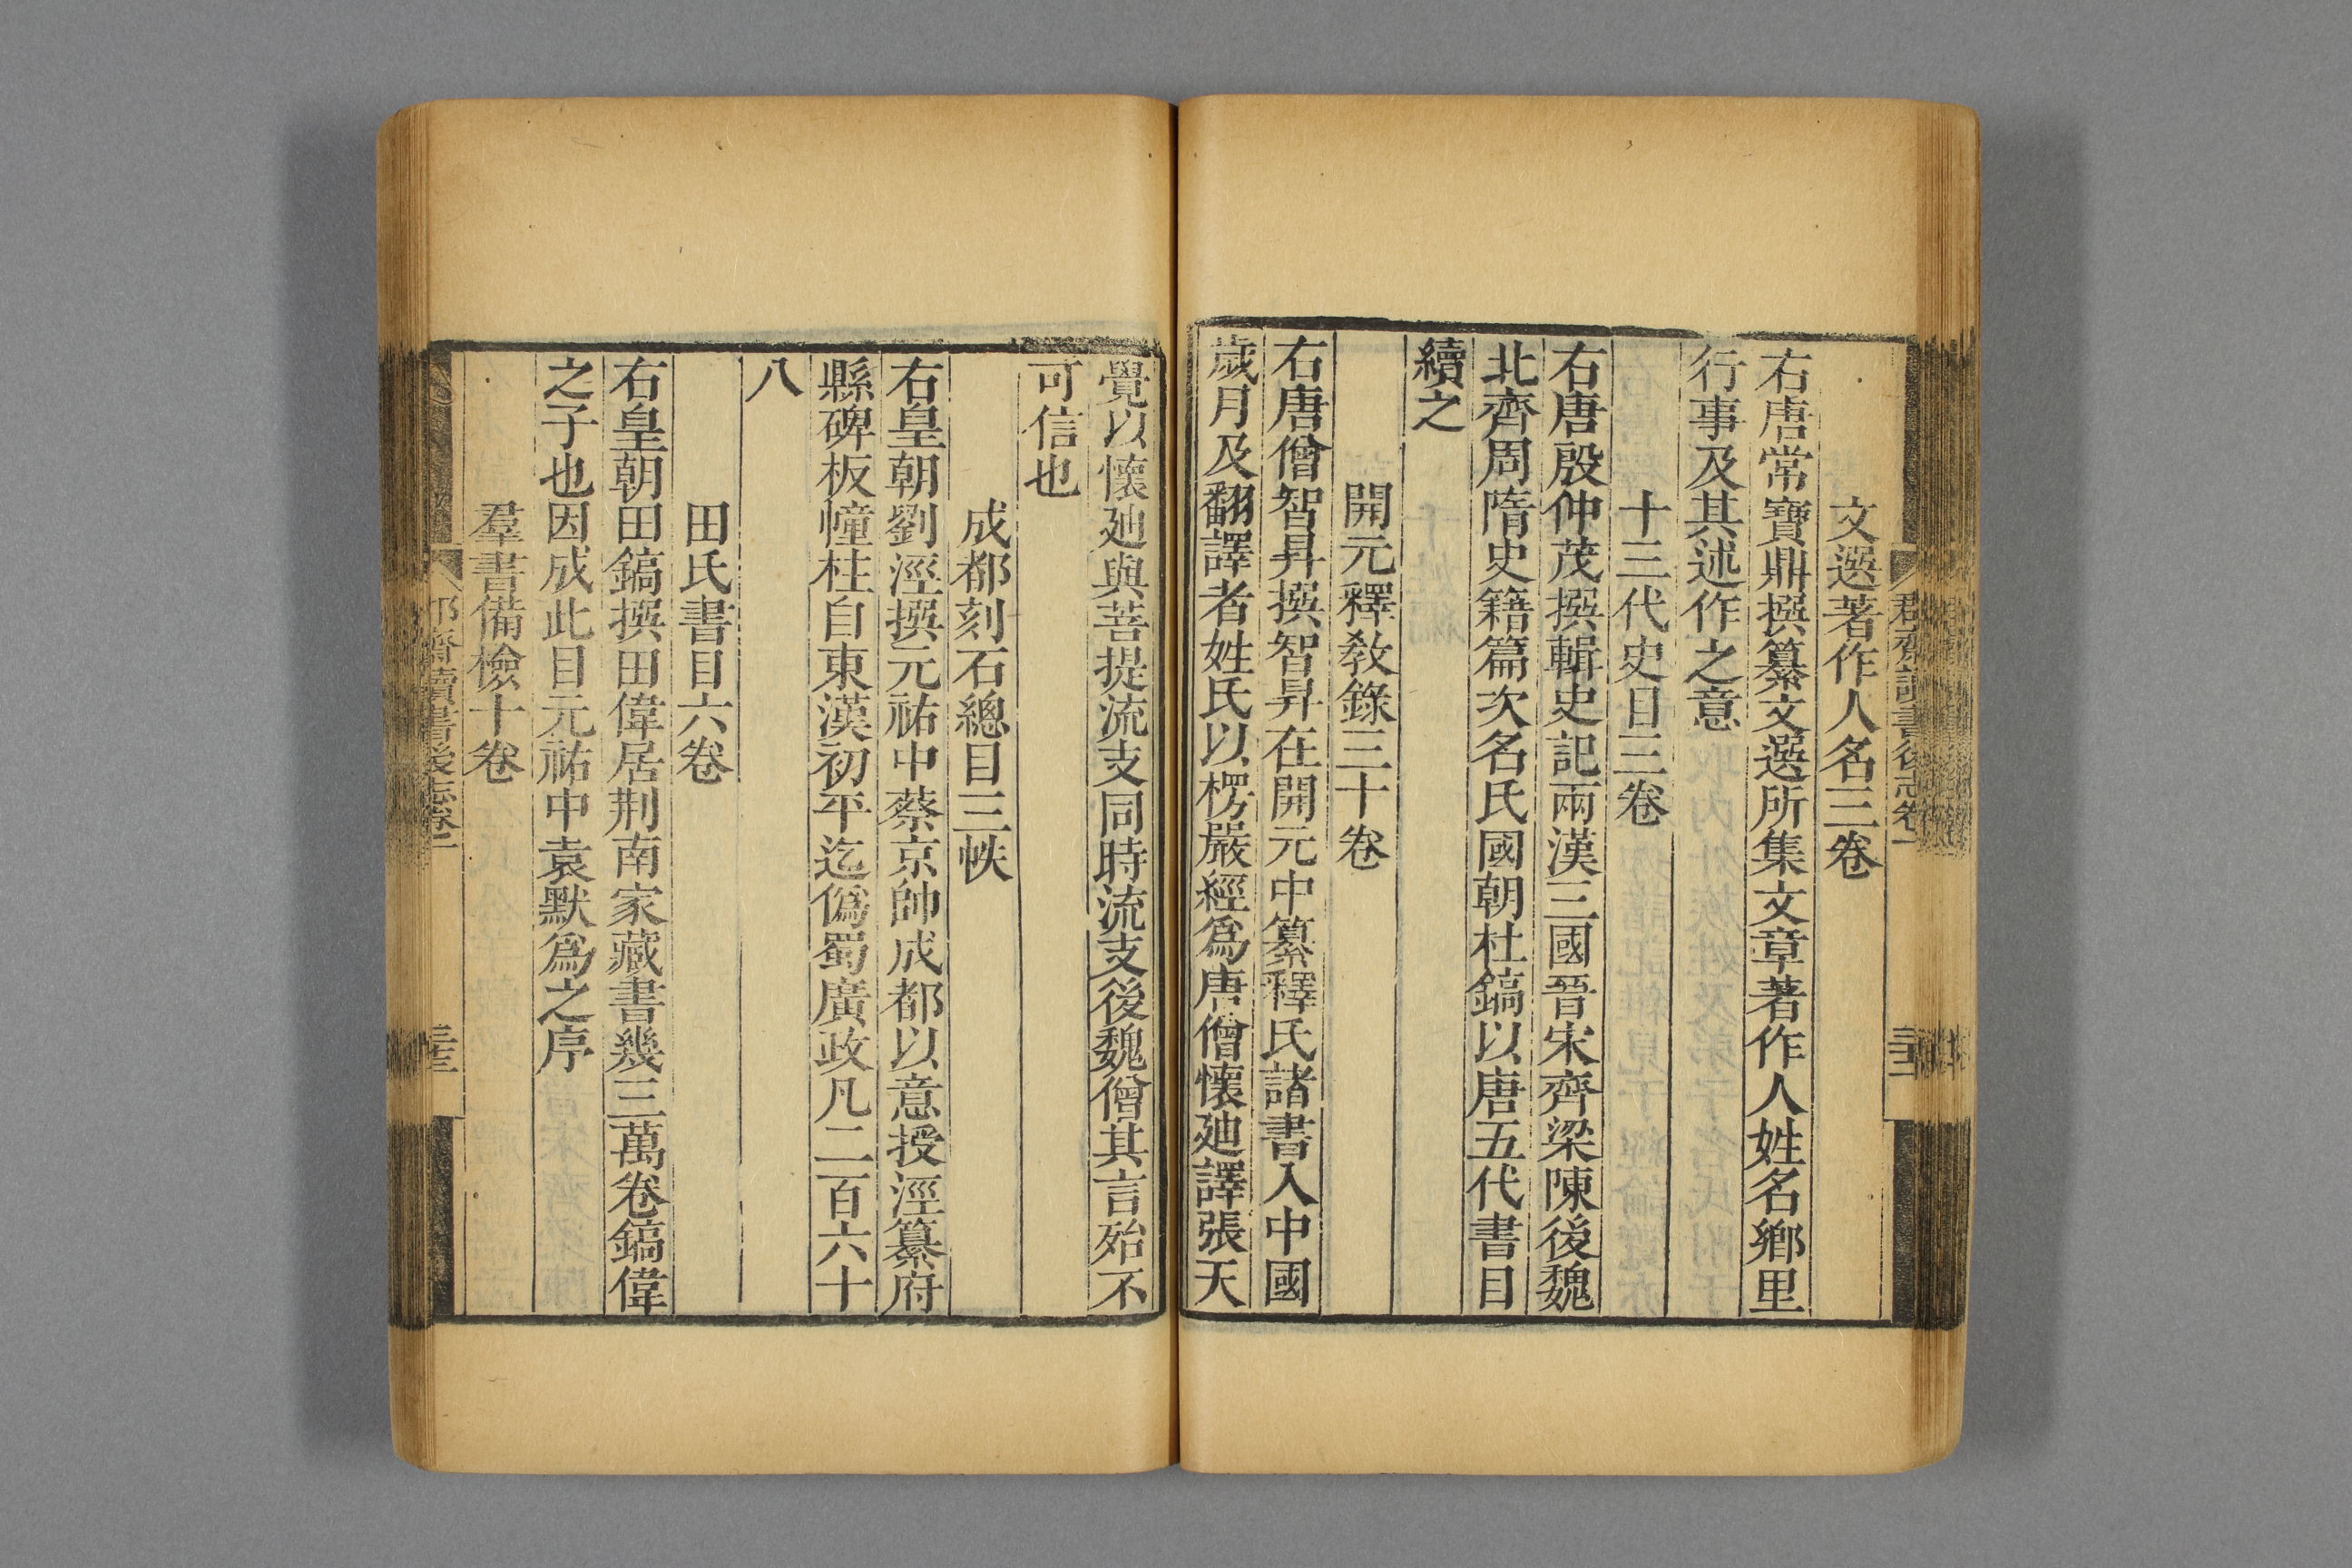 文選著作人名三卷
右唐常寶鼎撰纂文選所集文章著作人姓名鄉里
行事及其述作之意
十三代史目三卷
右唐殷仲茂撰輯史記兩漢三國晉宋齊梁陳後魏
北齊周隋史籍篇次名氏國朝杜鎬以唐五代書目
續之
開元釋敎錄三十卷
右唐僧智昇撰智昇在開元中纂釋氏諸書入中國
歲月及翻譯者姓氏以楞嚴經爲唐僧懷廸譯張天
覺以懷廸與菩提流支同時流支後魏僧其言殆不
可信也
成都刻石總目三帙
右皇朝劉涇撰元祐中蔡京帥成都以意授涇纂府
縣碑板幢柱自東漢初平迄僞蜀廣政凡二百六十
八
田氏書目六卷
右皇朝田鎬撰田偉居荆南家藏書幾三萬卷鎬偉
之子也因成此目元祐中袁默爲之序
羣書備檢十卷
郡齋讀書後志卷一